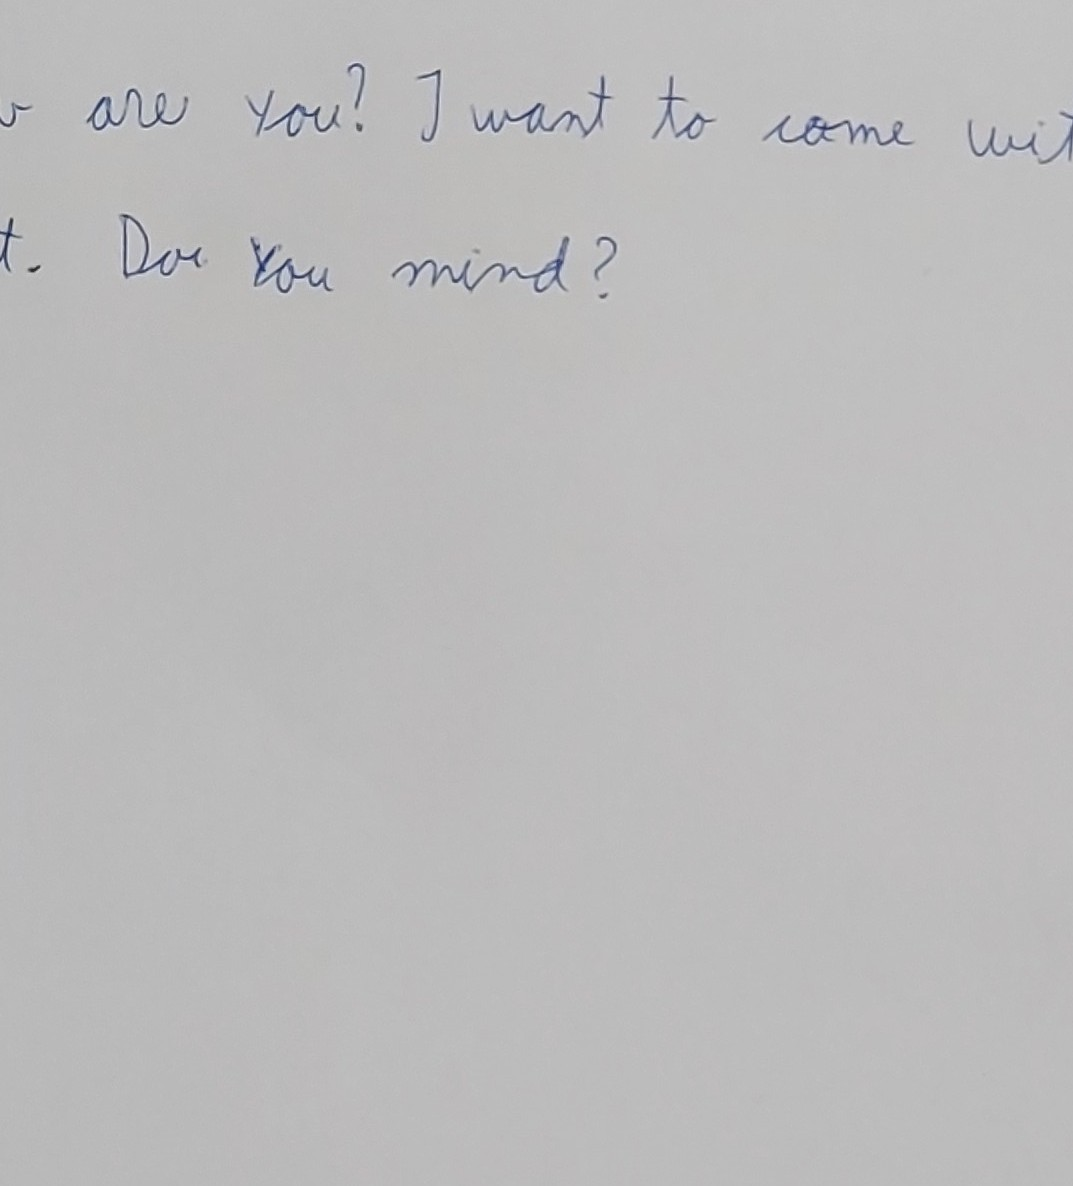 are you? I want to come wit
t. Do you mind?